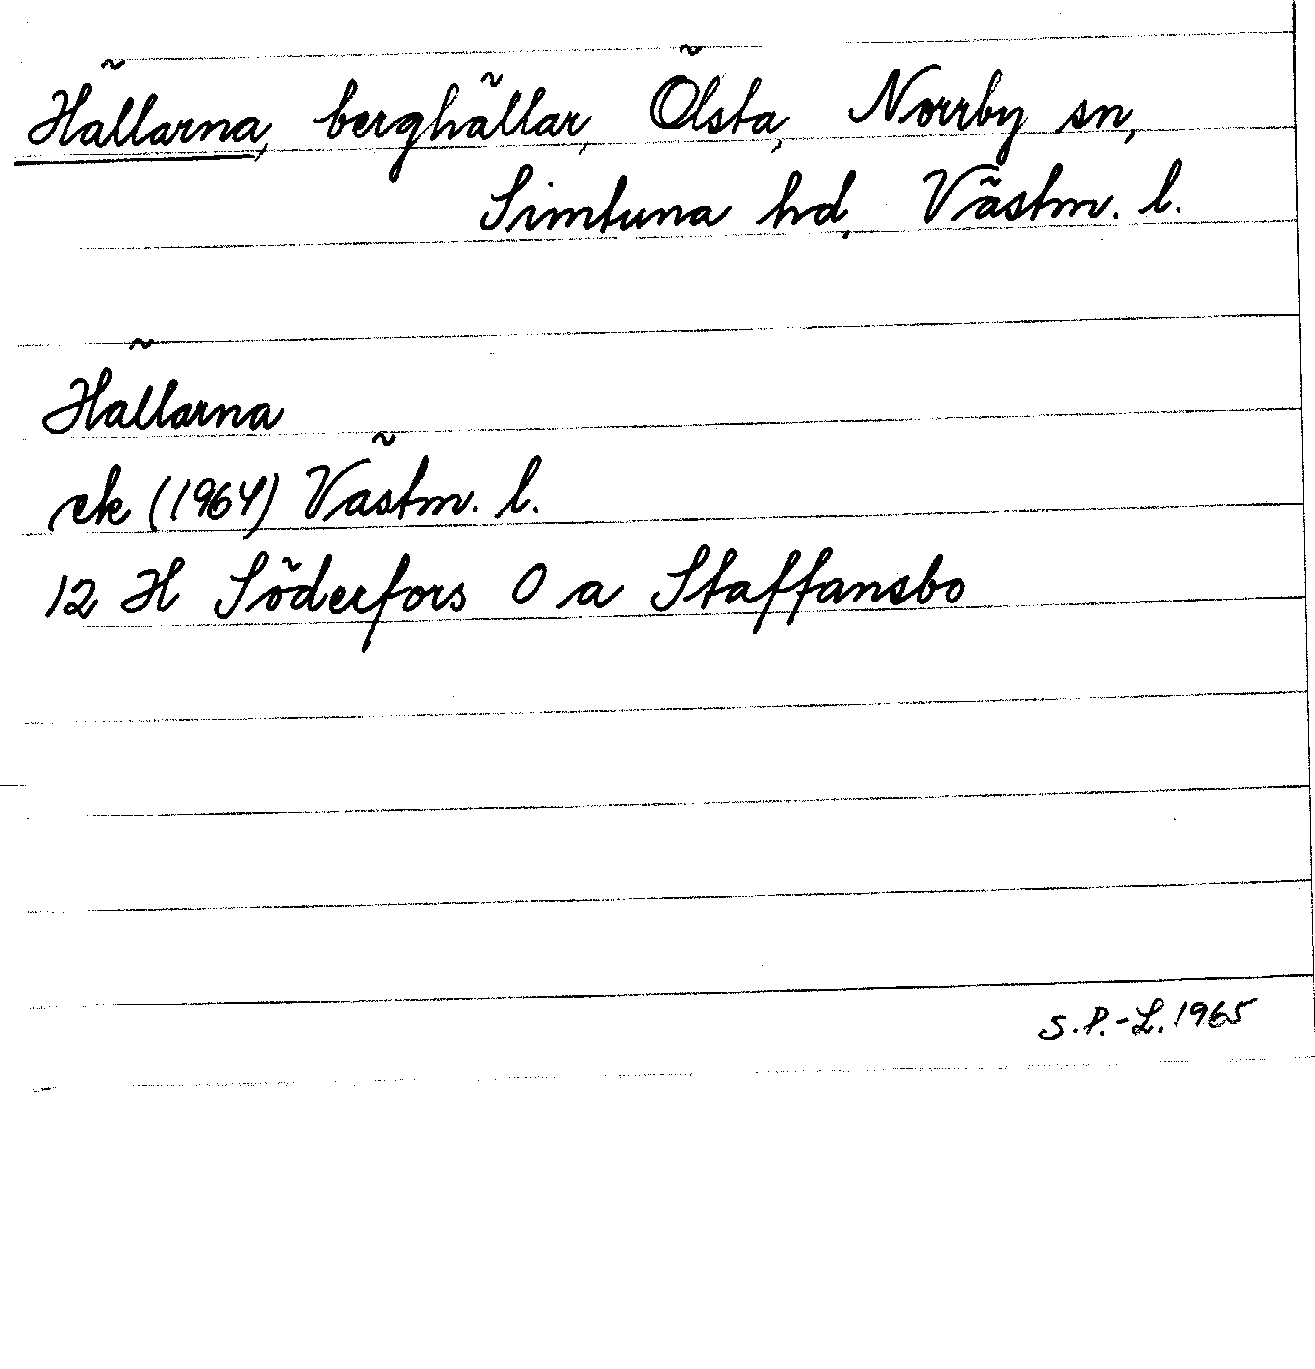 Hällarna, berghällar, Ölsta, Norrby sn,
Simtuna hd, Västm. l.
Hällarna
ek (1964) Västm. l.
12 H Söderfors O a Staffansbo
S.P.-L. 1965